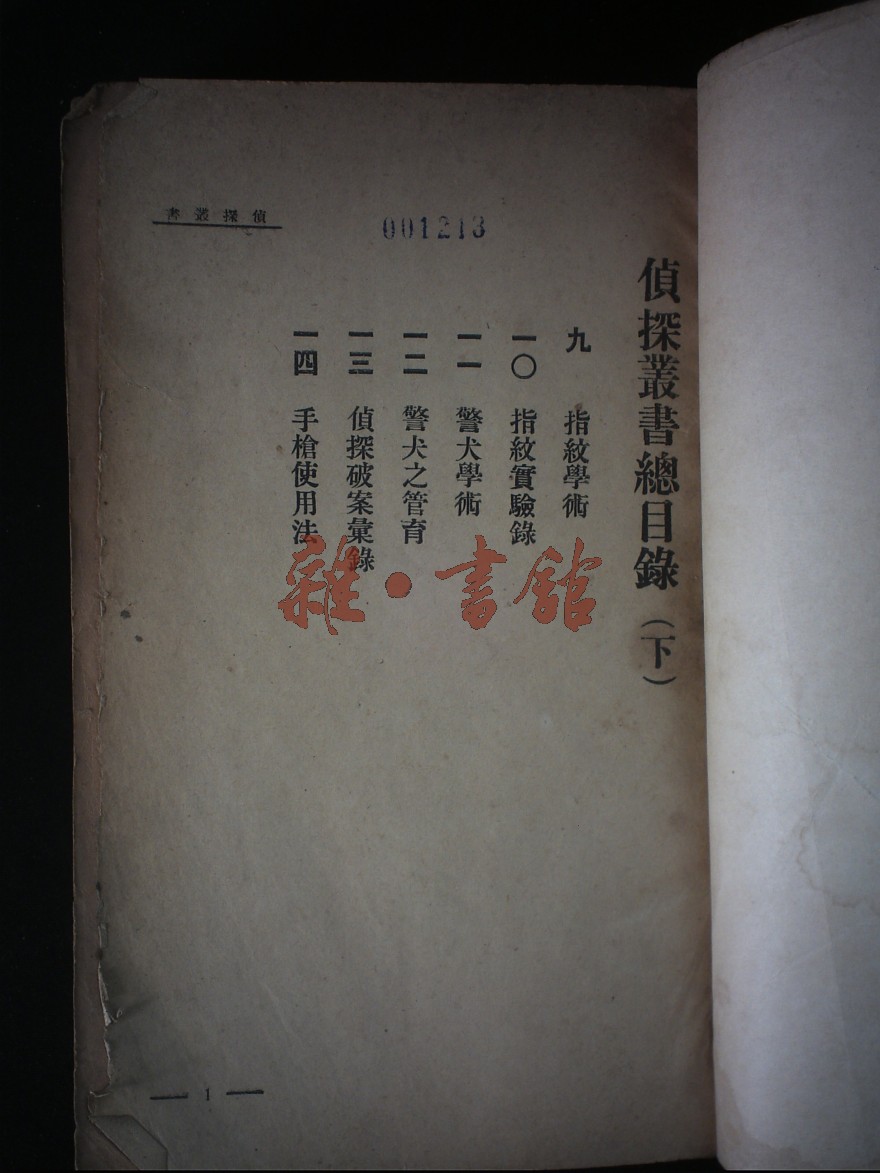 偵探叢書
001213
偵探叢書總目錄（下）
九 指紋學術
一〇 指紋實驗錄
一一 警犬學術
一二 警犬之管育
一三 偵探破案彙錄
一四 手槍使用法
雜·書館
— 1 —